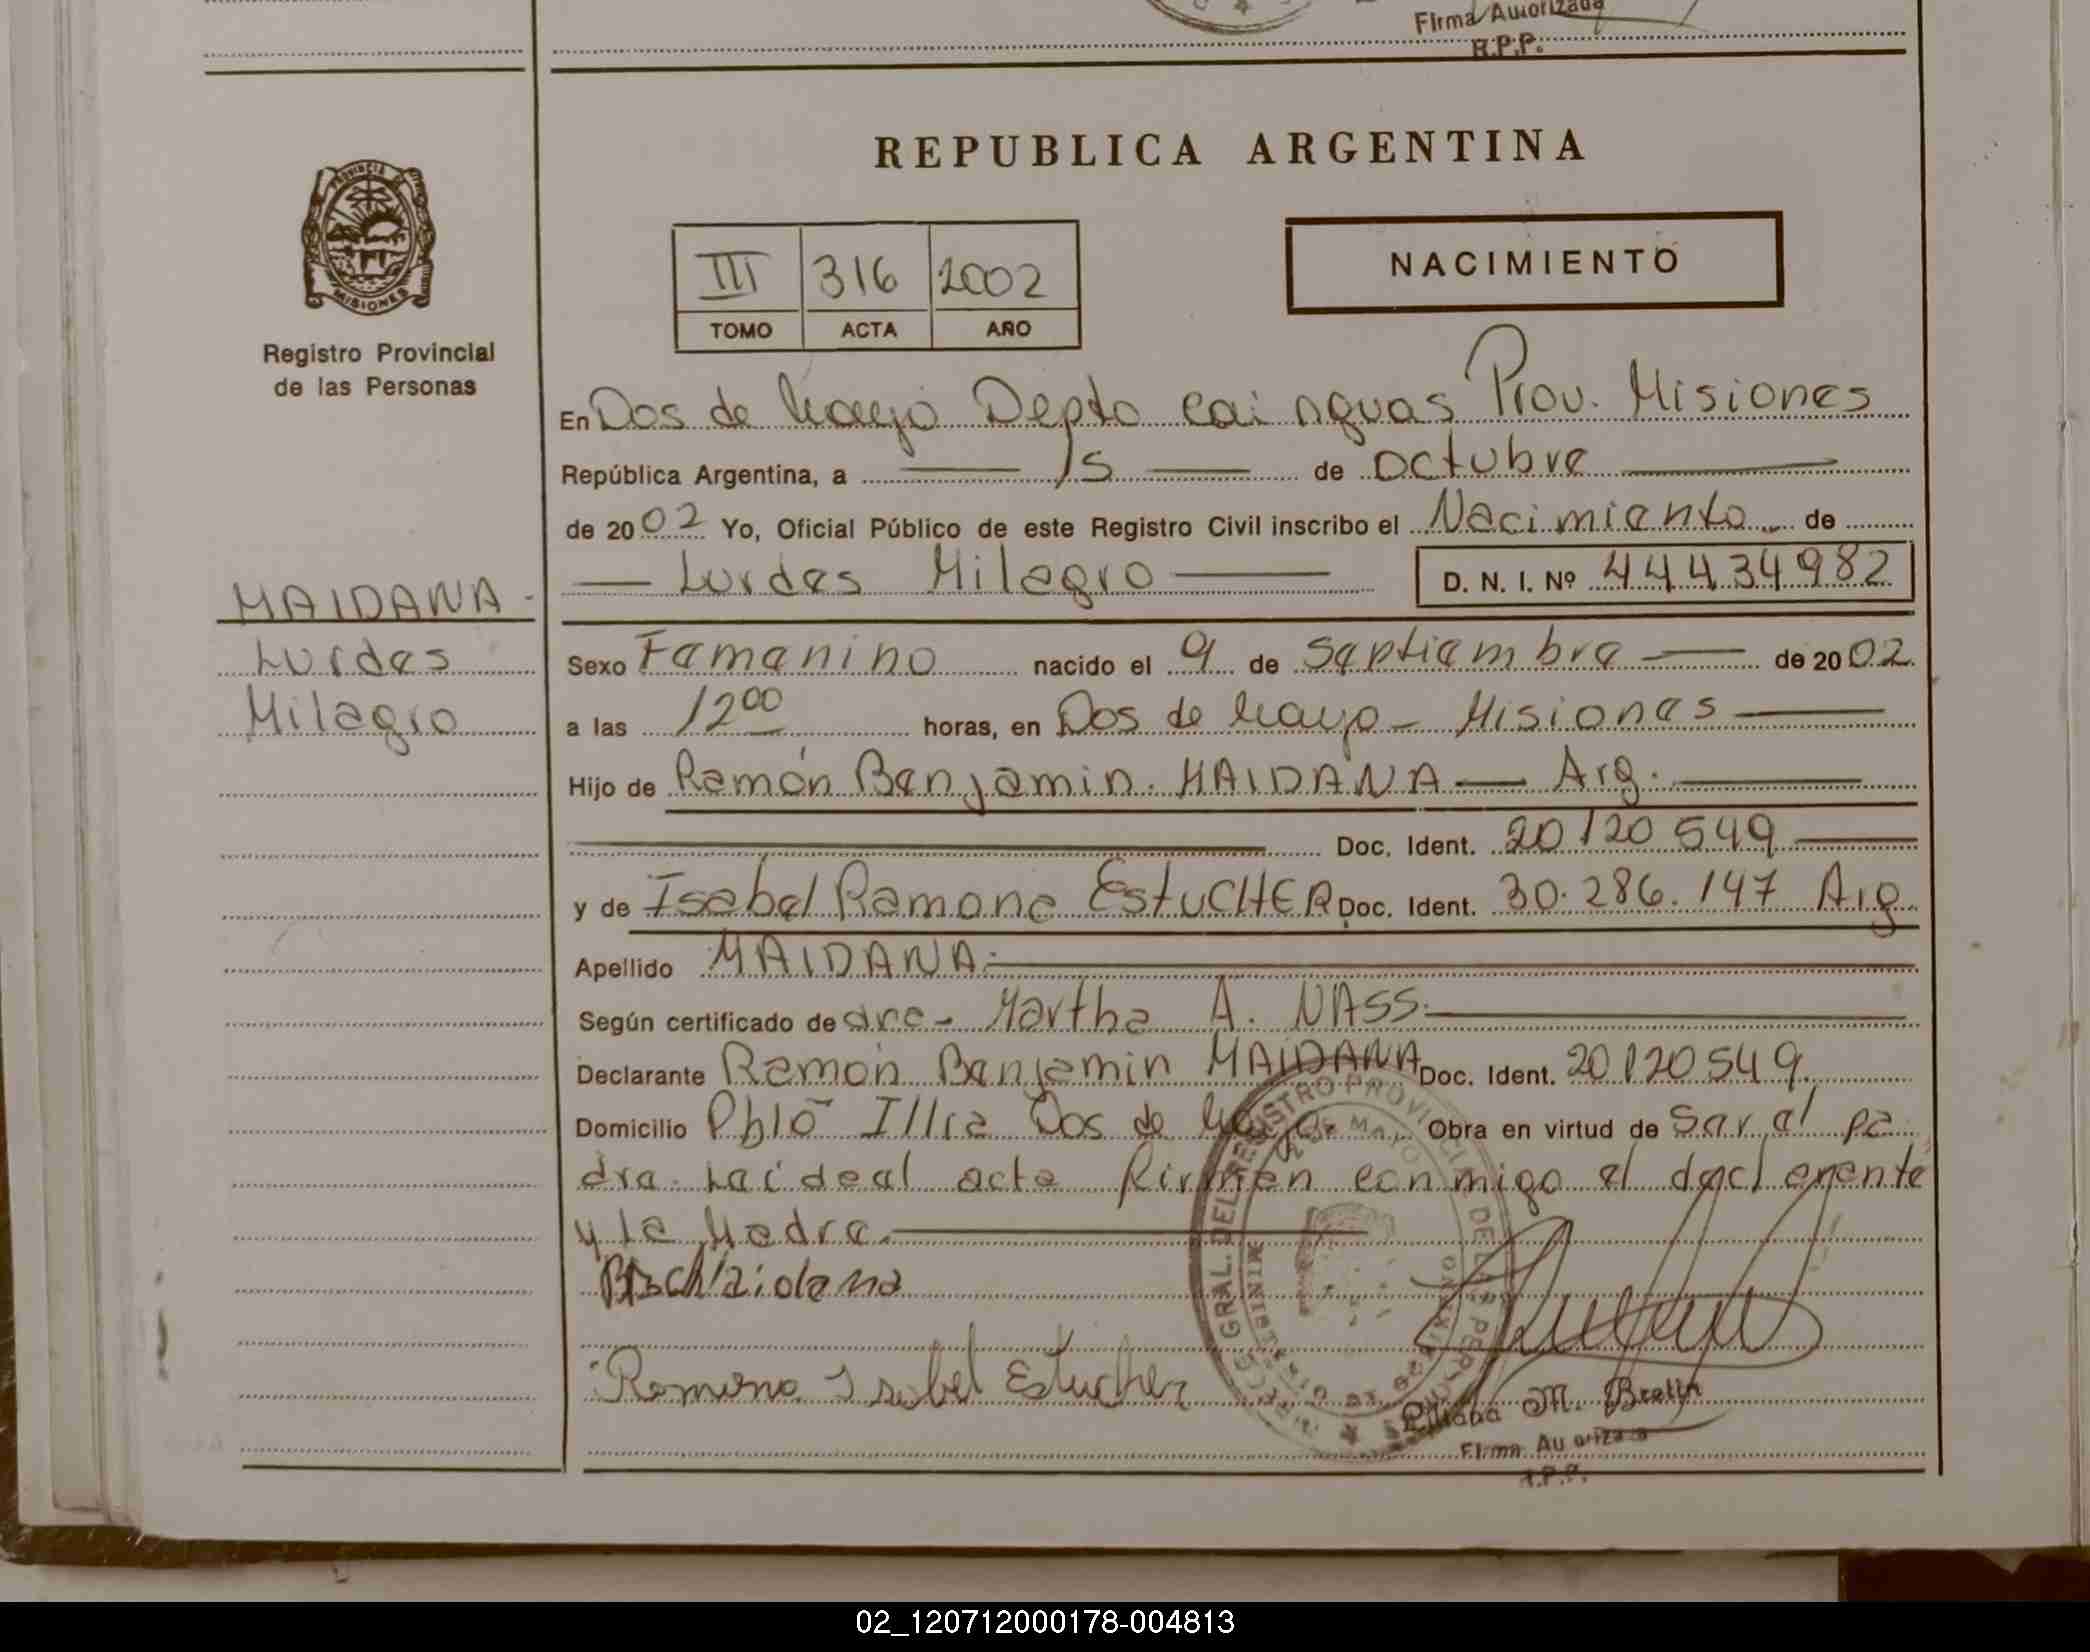 Firma Autorizada
R.P.P.
REPUBLICA ARGENTINA
PROVINCIA DE MISIONES
III 316 2002
TOMO ACTA AÑO
NACIMIENTO
Registro Provincial
de las Personas
En Dos de Mayo Depto cainguas Prov. Misiones
República Argentina, a 15 de octubre
de 2002 Yo, Oficial Público de este Registro Civil inscribo el Nacimiento de
Lurdes Milagro D. N. I. Nº 44434982
MAIDANA
Lurdes
Milagro
Sexo Femenino nacido el 9 de Septiembre de 2002
a las 12 00 horas, en Dos de Mayo - Misiones
Hijo de Ramón Benjamin MAIDANA Arg.
Doc. Ident. 20120549
y de Isabel Ramona EstuCHER Doc. Ident. 30.286.147 Arg
Apellido MAIDANA
Según certificado de dra - Martha A. NASS
Declarante Ramón Benjamin MAIDANA Doc. Ident. 20120549
Domicilio Pblo Illia Dos de Mayo Obra en virtud de Ser el pa
dre. Leída el acta Firman conmigo el declarante
y la Madre.
Ramona Isabel Estucher
M. Firma Autorizada
02_120712000178-004813